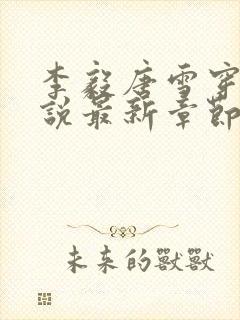 李毅唐雪穿
說最新章節
未来的獸獸